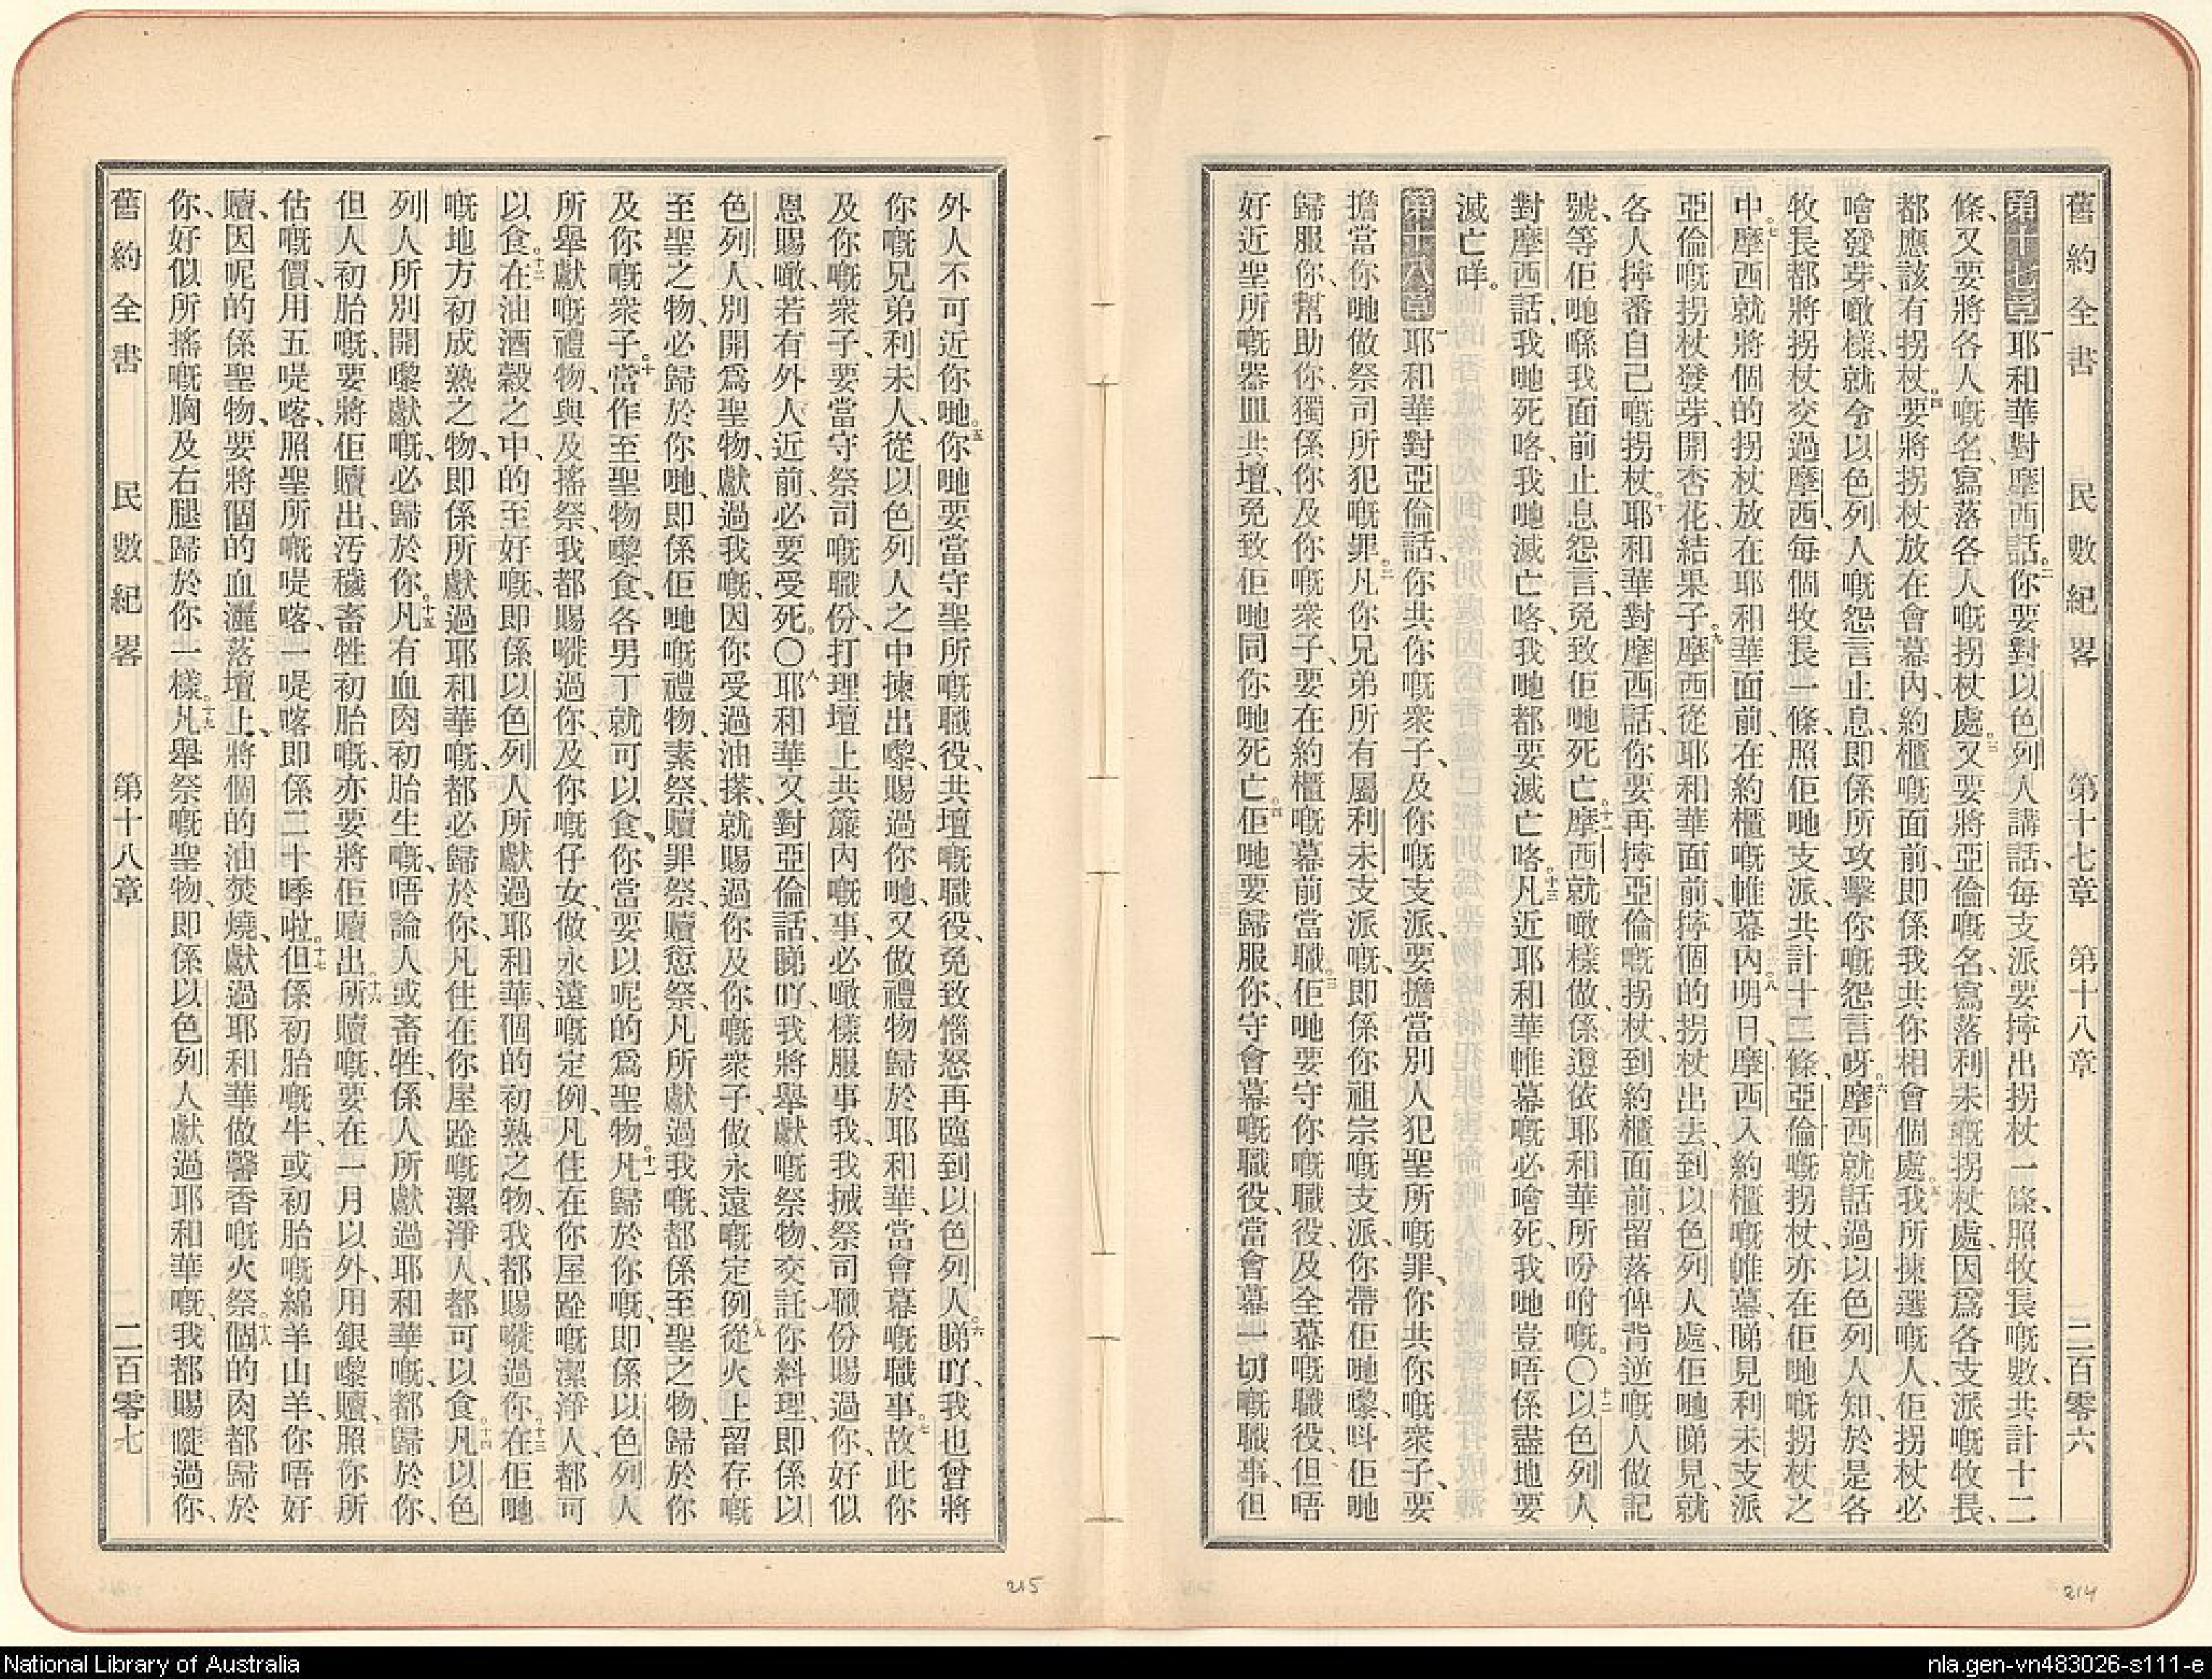 舊約全書 民數紀畧 第十七章 第十八章 二百零六
第十七章 一耶和華對摩西話。二你要對以色列人講話、每支派要擰出拐杖一條、照牧長嘅數、共計十二
條、又要將各人嘅名、寫落各人嘅拐杖處。三又要將亞倫嘅名、寫落利未嘅拐杖處、因爲各支派嘅牧長、
都應該有拐杖。四要將拐杖放在會幕內、約櫃嘅面前、卽係我共你相會個處。五我所揀選嘅人、佢拐杖必
噲發芽、噉樣、就令以色列人嘅怨言止息、卽係所攻擊你嘅怨言呀。六摩西就話過以色列人知、於是各
牧長都將拐杖交過摩西、每個牧長一條、照佢哋支派、共計十二條、亞倫嘅拐杖、亦在佢哋嘅拐杖之
中。七摩西就將個的拐杖放在耶和華面前、在約櫃嘅帷幕內。八明日、摩西入約櫃嘅帷幕、睇見利未支派
亞倫嘅拐杖發芽、開杏花、結果子。九摩西從耶和華面前、擰個的拐杖出去、到以色列人處、佢哋睇見、就
各人擰番自己嘅拐杖。十耶和華對摩西話、你要再擰亞倫嘅拐杖、到約櫃面前、留落俾背逆嘅人做記
號、等佢哋喺我面前止息怨言、免致佢哋死亡。十一摩西就噉樣做、係遵依耶和華所吩咐嘅。〇十二以色列人
對摩西話、我哋死咯、我哋滅亡咯、我哋都要滅亡咯。十三凡近耶和華帷幕嘅必噲死、我哋豈唔係盡地要
滅亡咩。
第十八章 一耶和華對亞倫話、你共你嘅衆子、及你嘅支派、要擔當別人犯聖所嘅罪、你共你嘅衆子、要
擔當你哋做祭司所犯嘅罪。二凡你兄弟所有屬利未支派嘅、卽係你祖宗嘅支派、你帶佢哋嚟、呌佢哋
歸服你、幫助你、獨係你及你嘅衆子、要在約櫃嘅幕前當職。三佢哋要守你嘅職役、及全幕嘅職役、但唔
好近聖所嘅器皿共壇、免致佢哋同你哋死亡。四佢哋要歸服你、守會幕嘅職役、當會幕一切嘅職事、但
外人不可近你哋。五你哋要當守聖所嘅職役、共壇嘅職役、免致惱怒再臨到以色列人。六睇吖、我也曾將
你嘅兄弟利未人、從以色列人之中揀出嚟、賜過你哋、又做禮物歸於耶和華、當會幕嘅職事。七故此你
及你嘅衆子、要當守祭司嘅職份、打理壇上共簾內嘅事、必噉樣服事我、我𢬿祭司職份賜過你、好似
恩賜噉、若有外人近前、必要受死。〇八耶和華又對亞倫話、睇吖、我將舉獻嘅祭物、交託你料理、卽係以
色列人、別開爲聖物、獻過我嘅、因你受過油搽、就賜過你及你嘅衆子、做永遠嘅定例。九從火上留存嘅
至聖之物、必歸於你哋、卽係佢哋嘅禮物、素祭、贖罪祭、贖愆祭、凡所獻過我嘅、都係至聖之物、歸於你
及你嘅衆子。十當作至聖物嚟食、各男丁就可以食、你當要以呢的爲聖物。十一凡歸於你嘅、卽係以色列人
所舉獻嘅禮物、與及搖祭、我都賜嘥過你、及你嘅仔女、做永遠嘅定例、凡住在你屋踎嘅潔淨人、都可
以食。十二在油酒穀之中、的至好嘅、卽係以色列人所獻過耶和華、個的初熟之物、我都賜嘥過你。十三在佢哋
嘅地方初成熟之物、卽係所獻過耶和華嘅、都必歸於你、凡住在你屋踎嘅潔淨人、都可以食。十四凡以色
列人所別開嚟獻嘅、必歸於你。十五凡有血肉初胎生嘅、唔論人或畜牲、係人所獻過耶和華嘅、都歸於你、
但人初胎嘅、要將佢贖出、汚穢畜牲初胎嘅、亦要將佢贖出。十六所贖嘅、要在一月以外、用銀嚟贖、照你所
估嘅價、用五㖷喀、照聖所嘅㖷喀、一㖷喀卽係二十㖗啦。十七但係初胎嘅牛、或初胎嘅綿羊山羊、你唔好
贖、因呢的係聖物、要將個的血灑落壇上、將個的油焚燒、獻過耶和華做馨香嘅火祭。十八個的肉都歸於
你、好似所搖嘅胸及右腿歸於你一樣。十九凡舉祭嘅聖物、卽係以色列人獻過耶和華嘅、我都賜嘥過你、
舊約全書 民數紀畧 第十八章 二百零七
215
214
National Library of Australia
nla.gen-vn483026-s111-e